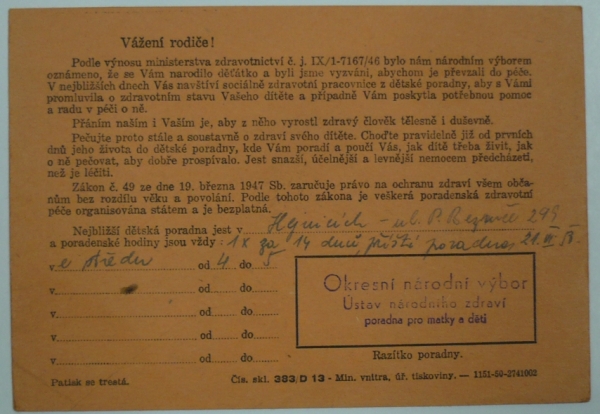 Vážení rodiče!
Podle výnosu ministerstva zdravotnictví č. j. IX/1-7167/46 bylo nám národním výborem
oznámeno, že se Vám narodilo děťátko a byli jsme vyzváni, abychom je převzali do péče.
V nejbližších dnech Vás navštíví sociálně zdravotní pracovnice z dětské poradny, aby s Vámi
promluvila o zdravotním stavu Vašeho dítěte a případně Vám poskytla potřebnou pomoc
a radu v péči o ně.
Přáním naším i Vaším je, aby z něho vyrostl zdravý člověk tělesně i duševně.
Pečujte proto stále a soustavně o zdraví svého dítěte. Choďte pravidelně již od prvních
dnů jeho života do dětské poradny, kde Vám poradí a poučí Vás, jak dítě třeba živit, jak
o ně pečovat, aby dobře prospívalo. Jest snazší, účelnější a levnější nemocem předcházeti,
než je léčiti.
Zákon č. 49 ze dne 19. března 1947 Sb. zaručuje právo na ochranu zdraví všem obča-
nům bez rozdílu věku a povolání. Podle tohoto zákona je veškerá poradenská zdravotní
péče organisována státem a je bezplatná.
Nejbližší dětská poradna jest v Hejnicích - ul. P. Bezruče 299
a poradenské hodiny jsou vždy: 1x za 14 dnů, příští poradna 21.
v e středu od 4 do 5
v od do
v od do
v od do
v od do
Okresní národní výbor
Ústav národního zdraví
poradna pro matky a děti
Razítko poradny.
Patisk se trestá.
Čís. skl. 383/D 13 - Min. vnitra, úř. tiskoviny. — 1151-50-2741062